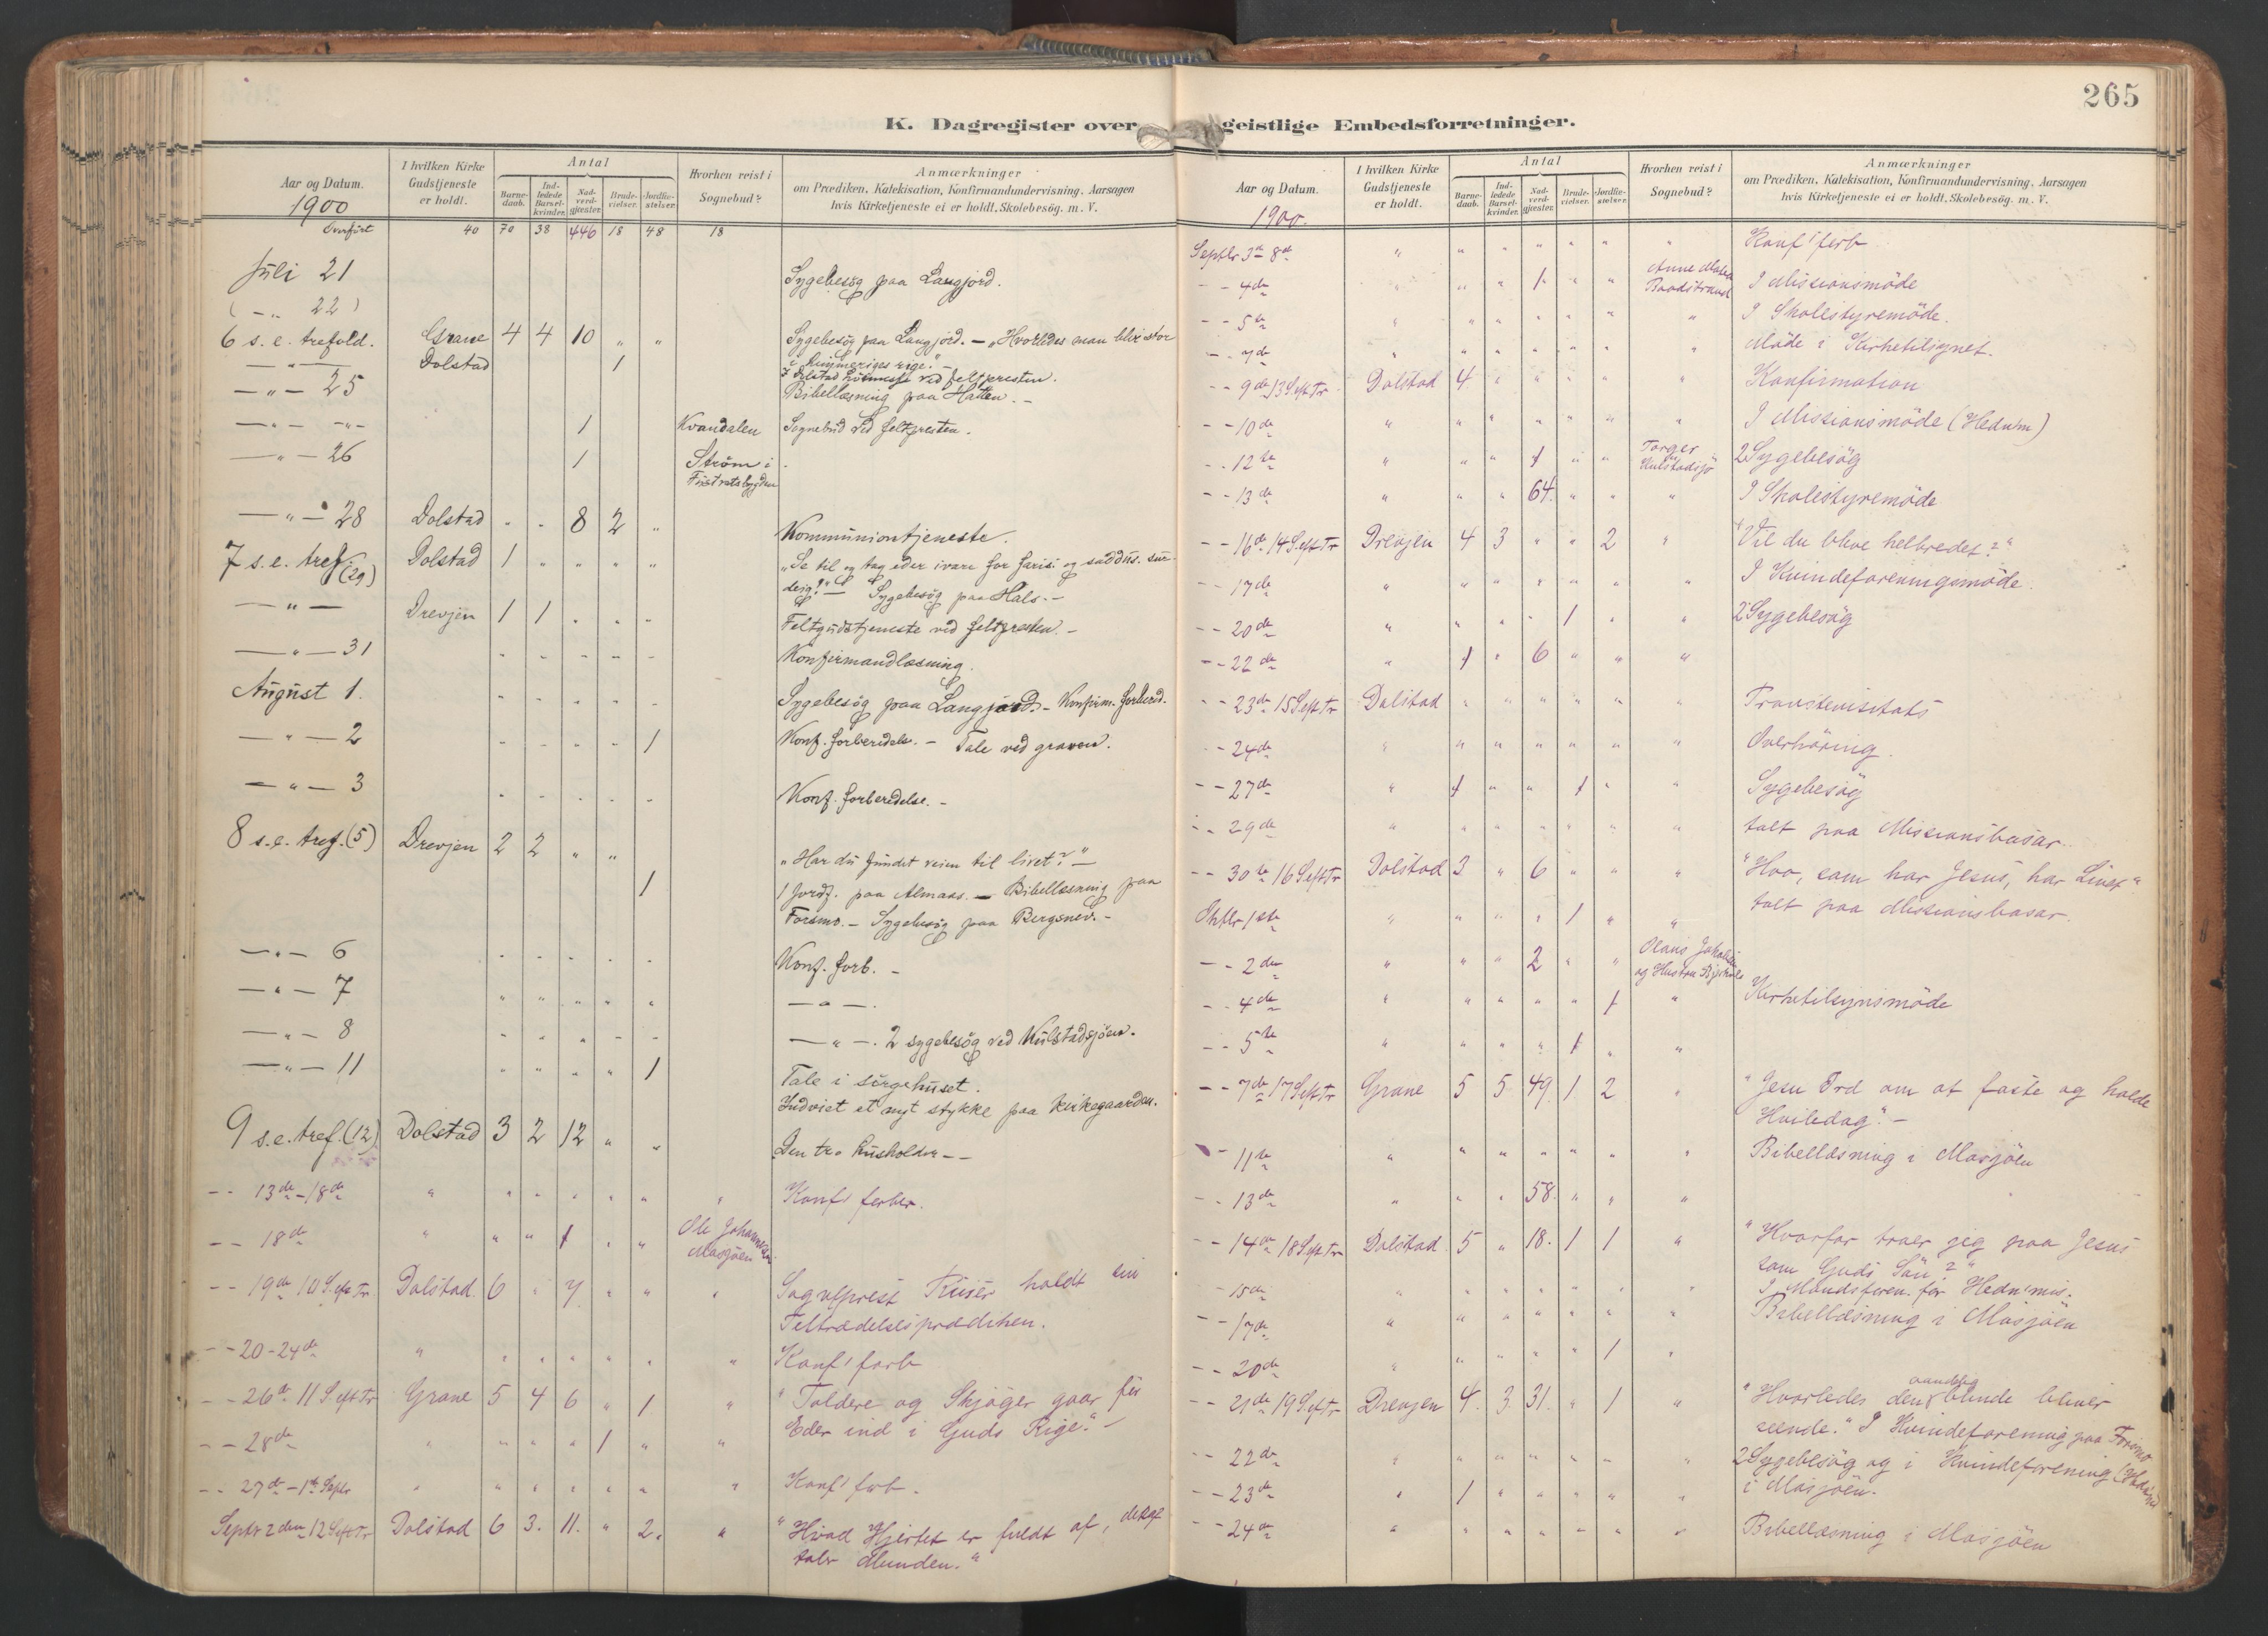 265
K. Dagregister over geistlige Embedsforretninger.
Aar og Datum.
1900
I hvilken Kirke Gudstjeneste er holdt.
Antal
Barne-daab.
Ind-ledede Barsel-kvinder.
Nad-verd-gjæster.
Brude-vielser.
Jordfæ-stelser.
Hvorhen reist i Sognebud?
Anmærkninger
om Prædiken, Katekisation, Konfirmandundervisning, Aarsagen
hvis Kirketjeneste ei er holdt, Skolebesøg. m. V.
Overført 40 70 38 446 18 48 18
Juli 21 Sygebesøg paa Langjord.
( - „ 22 )
6 s. e. trefold. Grane 4 4 10 „ „ Sygebesøg paa Langjord. — „Hvorledes man blir stor
— „ — Dolstad 1 i himmeriges rige". —
I Dolstad høimesse ved feltpresten.
— „ — 25 Bibellæsning paa Halten. —
— „ — -„- 1 Kvandalen Sognebud ved feltpresten.
— „ — 26 1 Strøm i
Fustvatsbygden
— „ — 28 Dolstad „ „ 8 2 „ Kommuniontjeneste.
7 s. e. tref. (29) Dolstad 1 „ „ „ „ „Se til og tag eder ivare for farisi og saddus. sur-
deig!" — Sygebesøg paa Hals. —
— „ — Drevjen 1 1 „ „ „ Feltgudstjeneste ved feltpresten. —
— „ — 31 „ „ „ „ „ Konfirmandlæsning.
August 1. „ „ „ „ „ Sygebesøg paa Langjord. — Konfirm. forbered.
— „ — 2 „ „ „ „ 1 Konf. forberedels. — Tale ved graven.
— „ — 3 „ „ „ „ „ Konf. forberedelse. —
8 s. e. tref. (5) Drevjen 2 2 „ „ „Har du fundet veien til livet?" —
1 1 Jordf. paa Almaas. — Bibellæsning paa
Forsmo. — Sygebesøg paa Bergsnev. —
— „ — 6 „ „ „ „ „ Konf. forb. —
— „ — 7 „ „ „ „ „ — „ —.
— „ — 8 „ „ „ „ „ — „ —. 2 sygebesøg ved Kulstadsjøen.
— „ — 11 „ „ „ „ 1 Tale i sørgehuset.
Indviet et nyt stykke paa kirkegaarden.
9 s. e. tref. (12) Dolstad 3 2 12 „ „ Den tro husholder — —
- - 13de - 18de „ „ „ „ „ „ „ Konf! forber.
- - 18de „ „ „ 1 „ „ Ole Johannesen
Mosjøen
- - 19de 10 S. eft Tr. Dolstad 6 „ 7 „ „ „ Sogneprest holdt sin
Tiltrædelsesprædiken.
- - 20 - 24de „ „ „ „ „ „ „ Konf! forb
- - 26de 11 S eft Tr Grane 5 4 6 „ 1 „ "Toldere og Skjøger gaar før
Eder ind i Guds Rige." —
- - 28de „ „ „ „ 1 „ „
- - 27de - 1ste Septr „ „ „ „ „ „ „ Konf! forb.
Septr 2den 12 S eft Tr Dolstad 6 3. 11. „ 2. „ "Hvad Hjertet er fuldt af, deraf
taler Munden."
Aar og Datum.
1900.
I hvilken Kirke Gudstjeneste er holdt.
Antal
Barne-daab.
Ind-ledede Barsel-kvinder.
Nad-verd-gjæster.
Brude-vielser.
Jordfæ-stelser.
Hvorhen reist i Sognebud?
Anmærkninger
om Prædiken, Katekisation, Konfirmandundervisning, Aarsagen
hvis Kirketjeneste ei er holdt, Skolebesøg. m. V.
Septbr 3de 8de „ „ „ „ „ „ „ Konf! forb
- - 4de „ „ „ 1. „ „ Anne I Missionsmøde
- - 5te „ „ „ „ „ „ „ I Skolestyremøde.
- - 7de „ „ „ „ „ „ „ Møde i Kirketilsynet.
- - 9de 13 S eft Tr Dolstad 4 „ „ „ „ „ Konfirmation
- - 10de „ „ „ „ „ „ „ I Missionsmøde (Hedn!m)
- - 12te „ „ „ 1 „ „ Torger
Kulstadsjø 2 Sygebesøg
- - 13de „ „ „ 64. „ „ „ I Skolestyremøde
- - 16de 14 S eft Tr Drevjen 4 3 „ „ 2 „ "Vil du blive helbredet?"
- - 17de „ „ „ „ „ „ „ I Kvindeforeningsmøde.
- - 20de „ „ „ „ 1 „ „ 2 Sygebesøg
- - 22de „ 1 „ 6 „ „ „
- - 23de 15 S eft Tr Dolstad „ „ „ „ „ „ Provstevisitats
- - 24de „ „ „ „ „ „ „ Overhøring.
- - 27de „ 1 „ „ 1 „ „ Sygebesøg
- - 29de „ „ „ „ „ „ „ talt paa Missionsbasar.
- - 30te 16 S eft Tr Dolstad 3 „ 6 „ „ „ "Hvo, som har Jesus, har Livet"
Oktbr 1ste „ „ „ „ 1 „ „ talt paa Missionsbasar.
- - 2den „ „ „ 2 „ „ Olaus Jakobsen
og Hustru
- - 4de „ „ „ „ „ 1 „ Kirketilsynsmøde
- - 5te „ „ „ „ 1 „ „
- - 7de 17 S eft Tr Grane 5 5 49. 1 2 „ "Jesu Ord om at faste og holde
Hviledag". —
- - 11te „ „ „ „ „ „ „ Bibellæsning i Mosjøen
- - 13de „ „ „ 58. „ „ „
- - 14de 18 S eft Tr Dolstad 5 „ 18. 1 1 „ "Hvorfor troer jeg paa Jesus
som Guds Søn?"
- 15de „ „ „ „ „ „ „ I Mandsforen. for Hedn!mis.
- - 17de „ „ „ „ „ „ „ Bibellæsning i Mosjøen
- - 20de „ „ „ „ „ 1 „
- - 21de 19 S eft Tr Drevjen 4. 3 31. „ 1 „ "Hvorledes den aandelig blinde bliver
seende." I Kvindeforening paa Forsmo
- - 22de „ „ „ „ „ „ „ 2 Sygebesøg og i Kvindeforening
- - 23de „ 1 „ „ „ „ „ i Mosjøen.
- - 24de „ „ „ „ „ „ „ Bibellæsning i Mosjøen